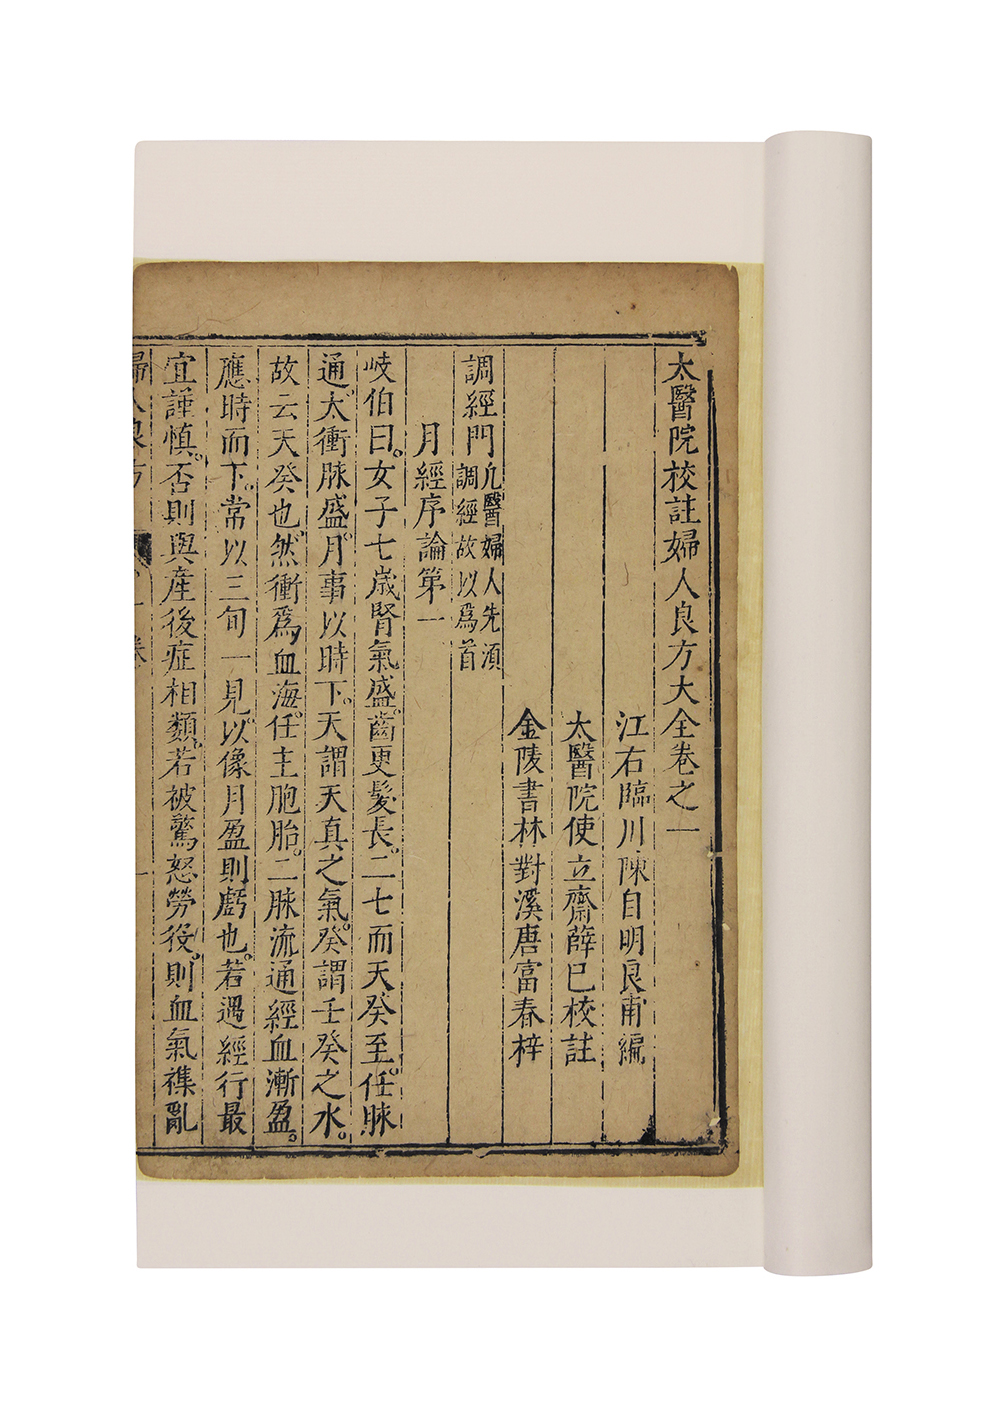 太醫院校註婦人良方大全卷之一
江右臨川陳自明良甫編
太醫院使立齋薛已校註
金陵書林對溪唐富春梓
調經門凡醫婦人先須
調經故以爲首
月經序論第一
岐伯曰。女子七歲腎氣盛。齒更髮長。二七而天癸至。任脉
通。太衝脉盛。月事以時下。天謂天真之氣。癸謂壬癸之水。
故云天癸也。然衝爲血海。任主胞胎。二脉流通經血漸盈。
應時而下。常以三旬一見。以像月盈則虧也。若遇經行最
宜謹慎。否則與產後症相類。若被驚怒勞役。則血氣襍亂
婦人良方
一卷